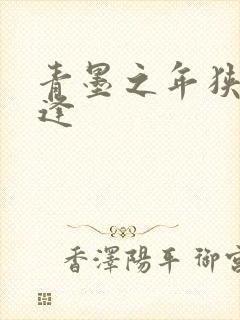 青墨之年狭
逢
香澤陽平 御宮